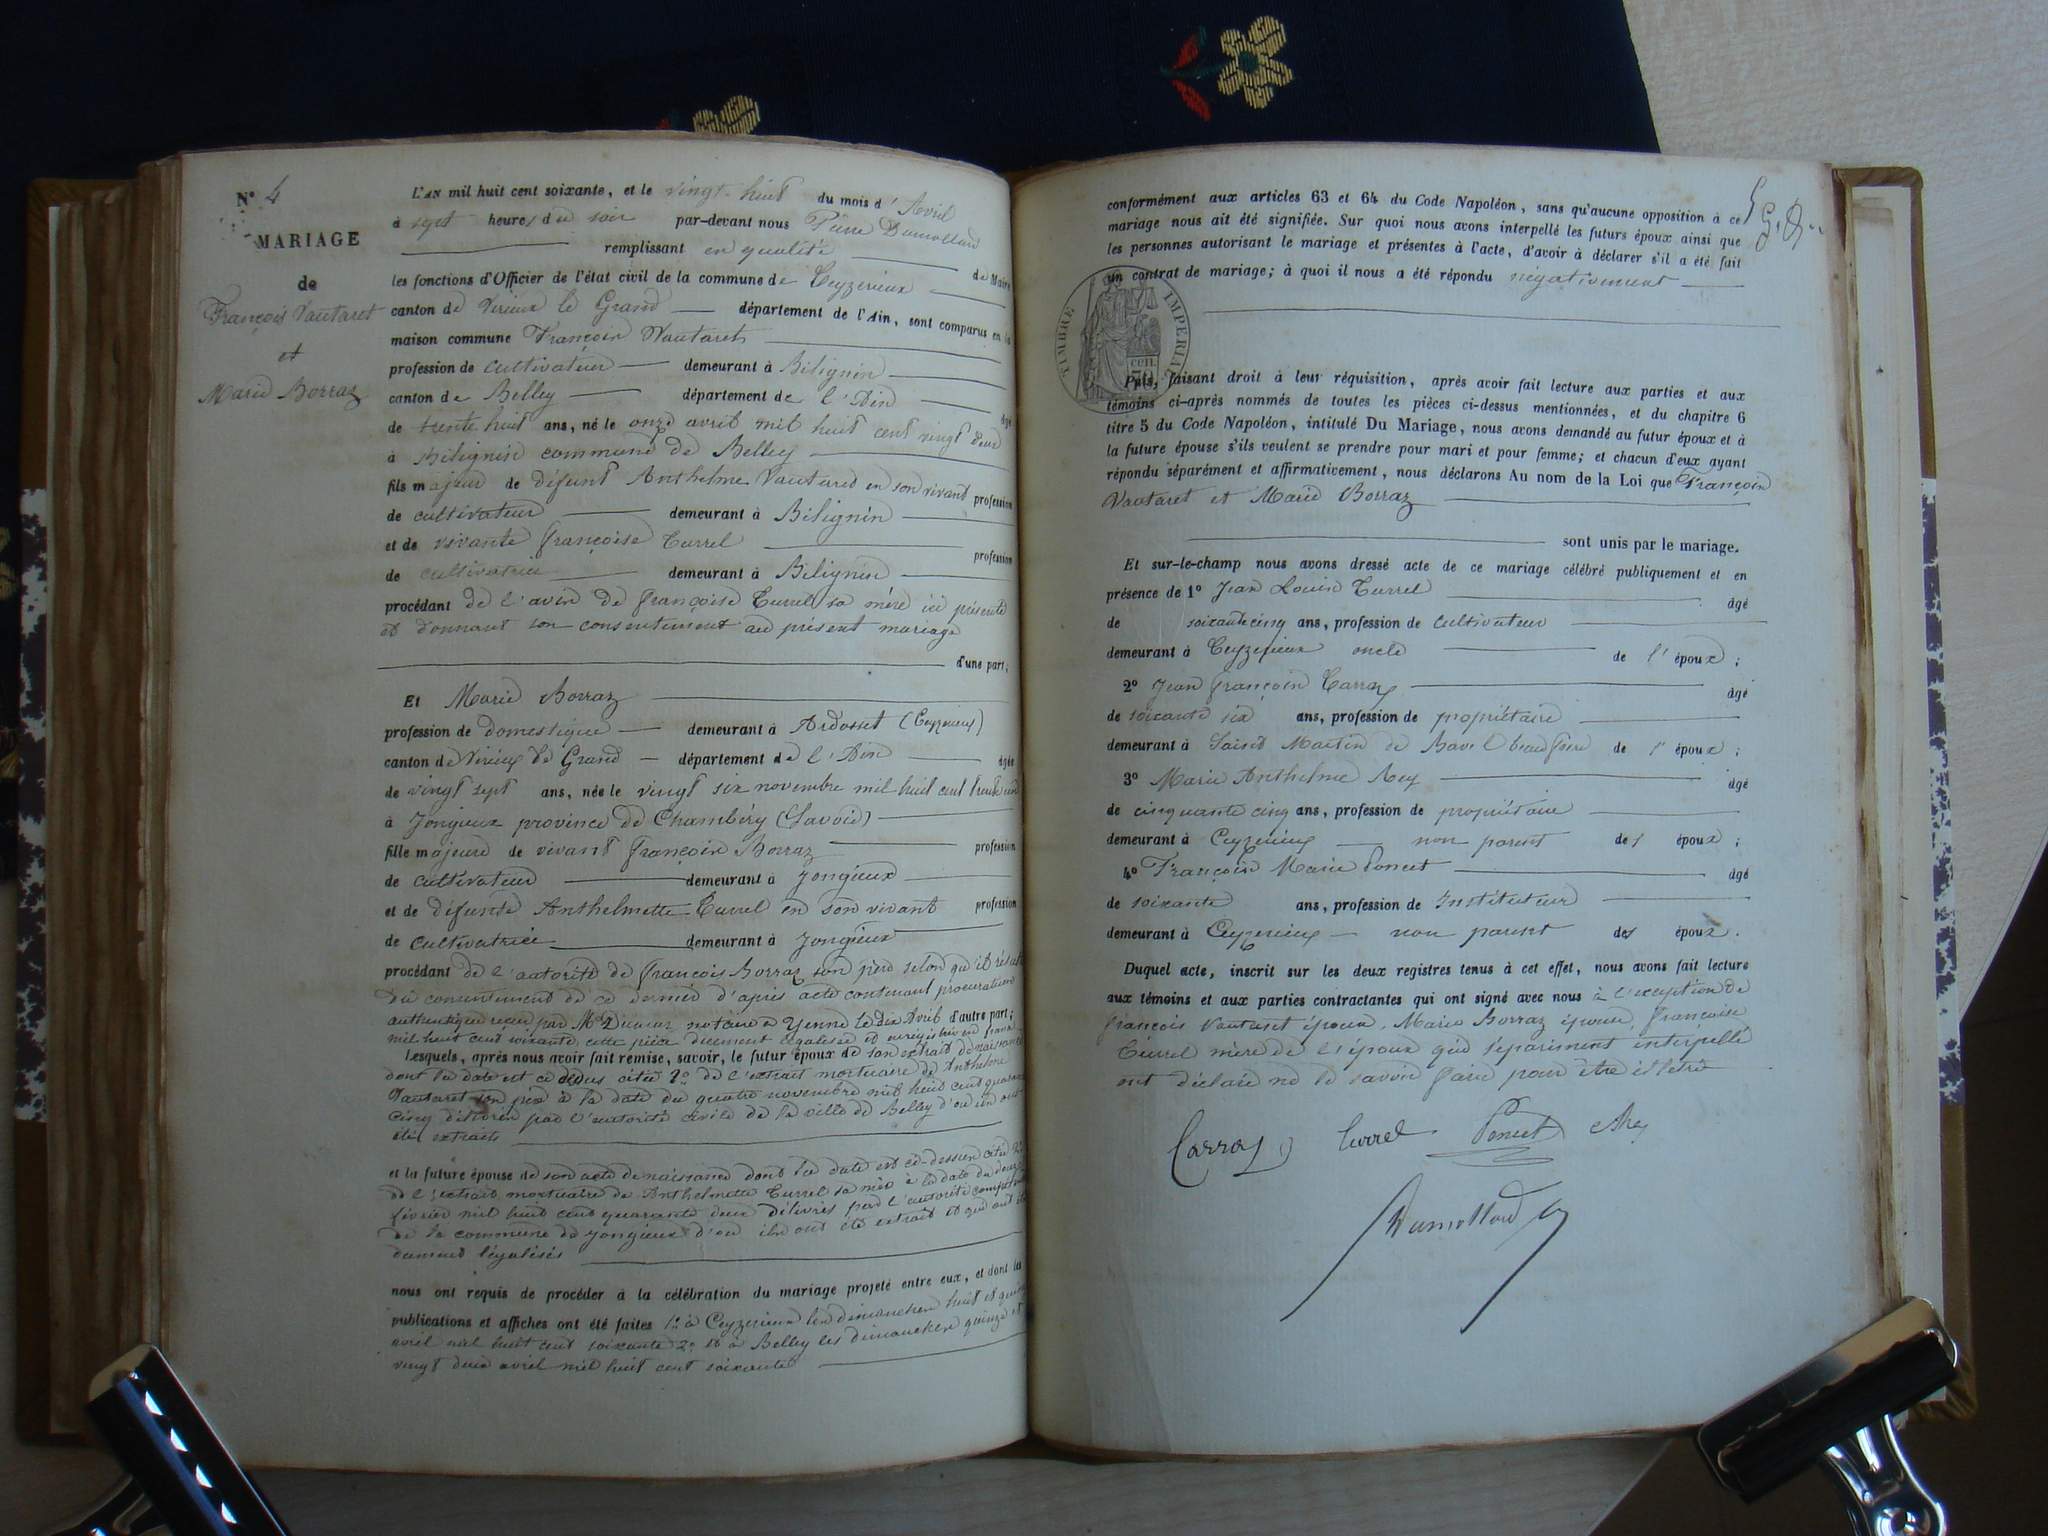 N° 4
MARIAGE
de
François Vautaret
et
Marie Borraz
L'AN mil huit cent soixante, et le vingt-huit du mois d'Avril
à sept heures du soir par-devant nous Pierre Dumollard
remplissant en qualité de Maire
les fonctions d'Officier de l'état civil de la commune de Ceyzerieux
canton de Virieux le Grand département de l'Ain, sont comparus en la
maison commune François Vautaret
profession de cultivateur demeurant à Bilignin
canton de Belley département de l'Ain âgé
de trente huit ans, né le onze avril mil huit cent vingt deux
à Bilignin commune de Belley
fils majeur de défunt Anthelme Vautared en son vivant profession
de cultivateur demeurant à Bilignin
et de vivante françoise Turrel profession
de cultivatrice demeurant à Bilignin
procédant de l'avis de françoise Turrel sa mère ici présente
et donnant son consentement au présent mariage
d'une part;
Et Marie Borraz
profession de domestique demeurant à Ardosset (Ceyzerieux)
canton de Virieux le Grand département de l'Ain âgée
de vingt sept ans, née le vingt six novembre mil huit cent trente
à Jongieux province de Chambéry (Savoie)
fille majeure de vivant françois Borraz profession
de cultivateur demeurant à Jongieux
et de défunte Anthelmette Turrel en son vivant profession
de cultivatrice demeurant à Jongieux
procédant de l'autorité de françois Borraz son père selon qu'il résulte
du consentement de ce dernier d'après acte contenant procuration
authentique reçu par Me notaire à Yenne le dix Avril d'autre part;
mil huit cent soixante, cette pièce dûment légalisée et enregistrée en france
Lesquels, après nous avoir fait remise, savoir, le futur époux de son extrait de naissance
dont la date est ci dessus citée 2° de l'extrait mortuaire de Anthelme
Vautaret son père à la date du quatre novembre mil huit cent quarante
cinq délivrés par l'autorité civile de la ville de Belley d'où ils ont
été extraits
et la future épouse de son acte de naissance dont la date est ci-dessus citée 2°
de l'extrait mortuaire de Anthelmette Turrel sa mère à la date du deux
février mil huit cent quarante deux délivrés par l'autorité compétente
de la commune de Jongieux d'où ils ont été extraits et qui ont été
dument légalisés
nous ont requis de procéder à la célébration du mariage projeté entre eux, et dont les
publications et affiches ont été faites 1° à Ceyzerieux les dimanches huit et quinze
avril mil huit cent soixante 2° et à Belley les dimanches quinze et
vingt deux avril mil huit cent soixante
conformément aux articles 63 et 64 du Code Napoléon, sans qu'aucune opposition à ce
mariage nous ait été signifiée. Sur quoi nous avons interpellé les futurs époux ainsi que
les personnes autorisant le mariage et présentes à l'acte, d'avoir à déclarer s'il a été fait
un contrat de mariage; à quoi il nous a été répondu négativement
TIMBRE IMPERIAL
cen
Puis, faisant droit à leur réquisition, après avoir fait lecture aux parties et aux
témoins ci-après nommés de toutes les pièces ci-dessus mentionnées, et du chapitre 6
titre 5 du Code Napoléon, intitulé Du Mariage, nous avons demandé au futur époux et à
la future épouse s'ils veulent se prendre pour mari et pour femme; et chacun d'eux ayant
répondu séparément et affirmativement, nous déclarons Au nom de la Loi que François
Vautaret et Marie Borraz
sont unis par le mariage.
Et sur-le-champ nous avons dressé acte de ce mariage célébré publiquement et en
présence de 1° Jean Louis Turrel âgé
de soixante cinq ans, profession de cultivateur
demeurant à Ceyzerieux oncle de l'époux;
2° Jean françois Carraz âgé
de soixante six ans, profession de propriétaire
demeurant à Saint Martin de Bavel beau frère de l'époux;
3° Marie Anthelme Rey âgé
de cinquante cinq ans, profession de propriétaire
demeurant à Ceyzerieux non parent des époux;
4° François Marie Poncet âgé
de soixante ans, profession de Instituteur
demeurant à Ceyzerieux non parent des époux.
Duquel acte, inscrit sur les deux registres tenus à cet effet, nous avons fait lecture
aux témoins et aux parties contractantes qui ont signé avec nous à l'exception de
françois Vautaret époux, Marie Borraz épouse, françoise
Turrel mère de l'époux qui séparément interpellé
ont déclaré ne le savoir faire pour être illétré
Carraz Turrel Poncet Rey
Dumollard